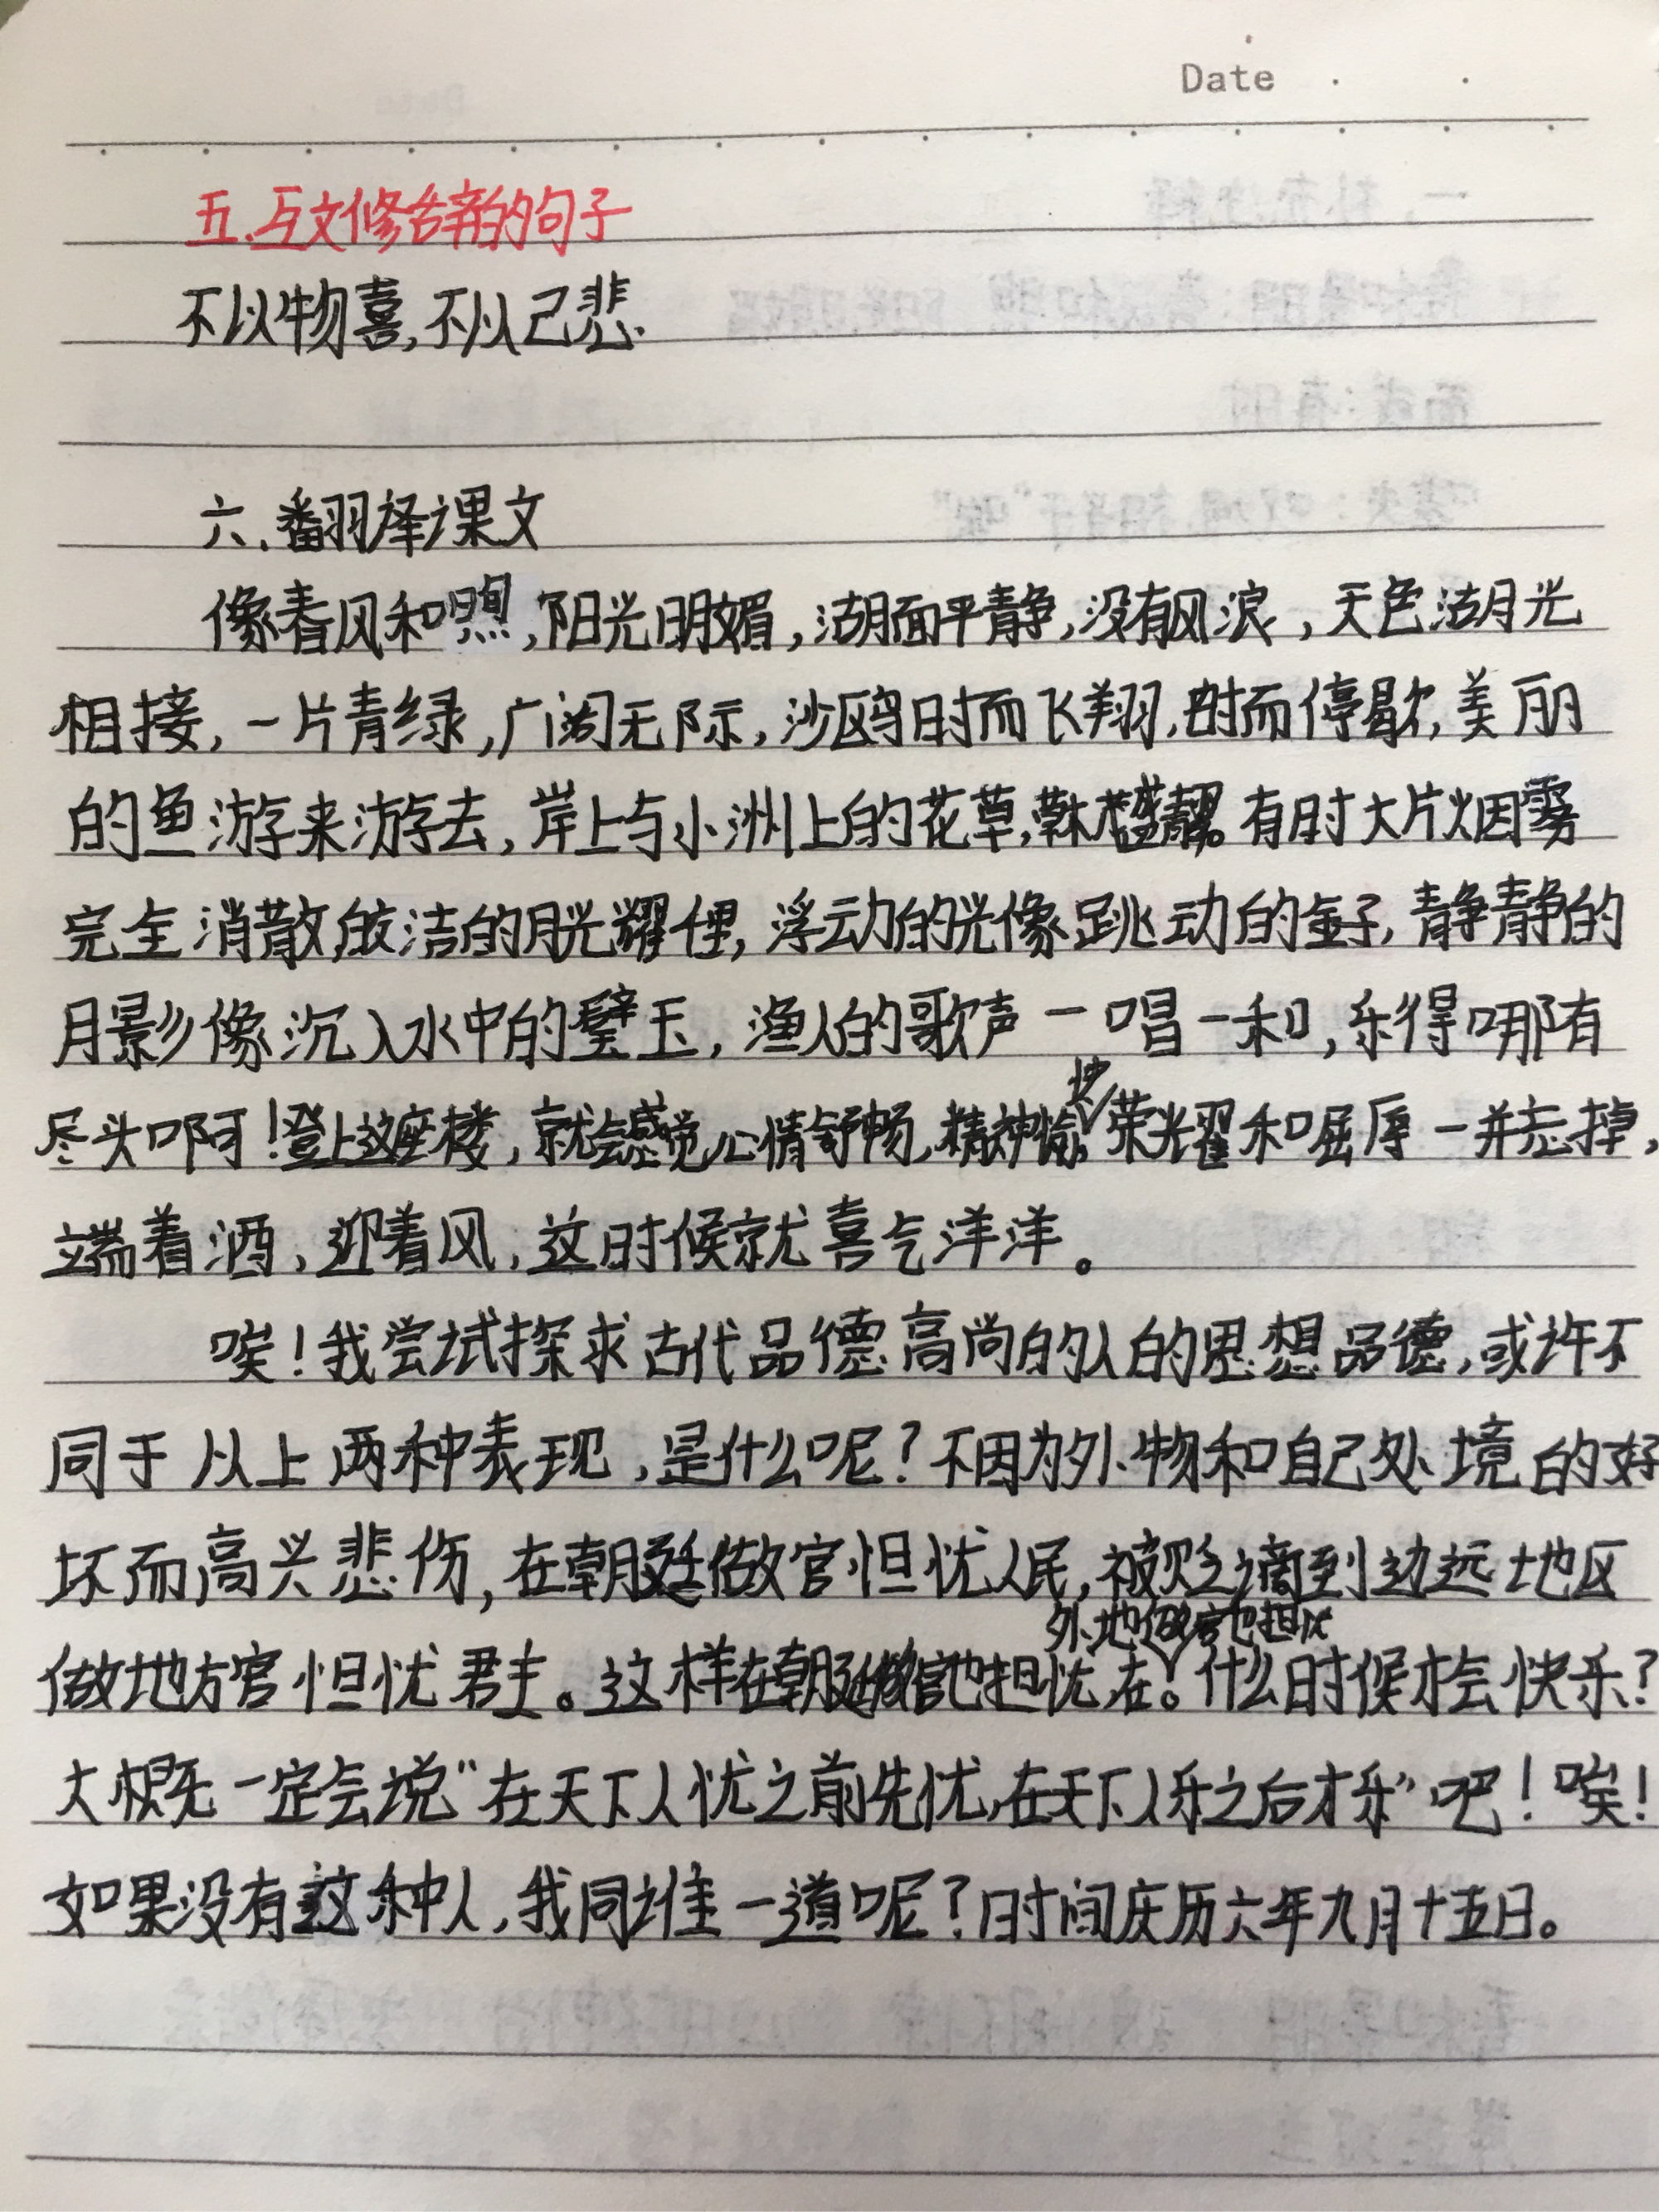 Date
五.互文修辞的句子
不以物喜,不以己悲.
六.翻译课文
像春风和煦,阳光明媚,湖面平静,没有风浪,天色湖光
相接,一片青绿,广阔无际,沙鸥时而飞翔,时而停歇,美丽
的鱼游来游去,岸上与小洲上的花草,草木茂盛青翠。有时大片烟雾
完全消散,皎洁的月光耀住,浮动的光像跳动的金子,静静的
月影像沉入水中的璧玉,渔人的歌声一唱一和,乐得哪有
尽头啊!登上这座楼,就会感觉心情舒畅,精神愉快。荣光耀和屈辱一并忘掉,
端着酒,迎着风,这时候就喜气洋洋。
唉!我尝试探求古代品德高尚的人的思想品德,或许不
同于以上两种表现,是什么呢?不因为外物和自己处境的好
坏而高兴悲伤,在朝廷做官担忧人民,被贬谪到边远地区
做地方官担忧君主。这样在朝廷做官也担忧,在外地做官也担忧。什么时候才会快乐?
大概一定会说“在天下人忧之前先忧,在天下人乐之后才乐”吧!唉!
如果没有这种人,我同谁一道呢?时间庆历六年九月十五日。